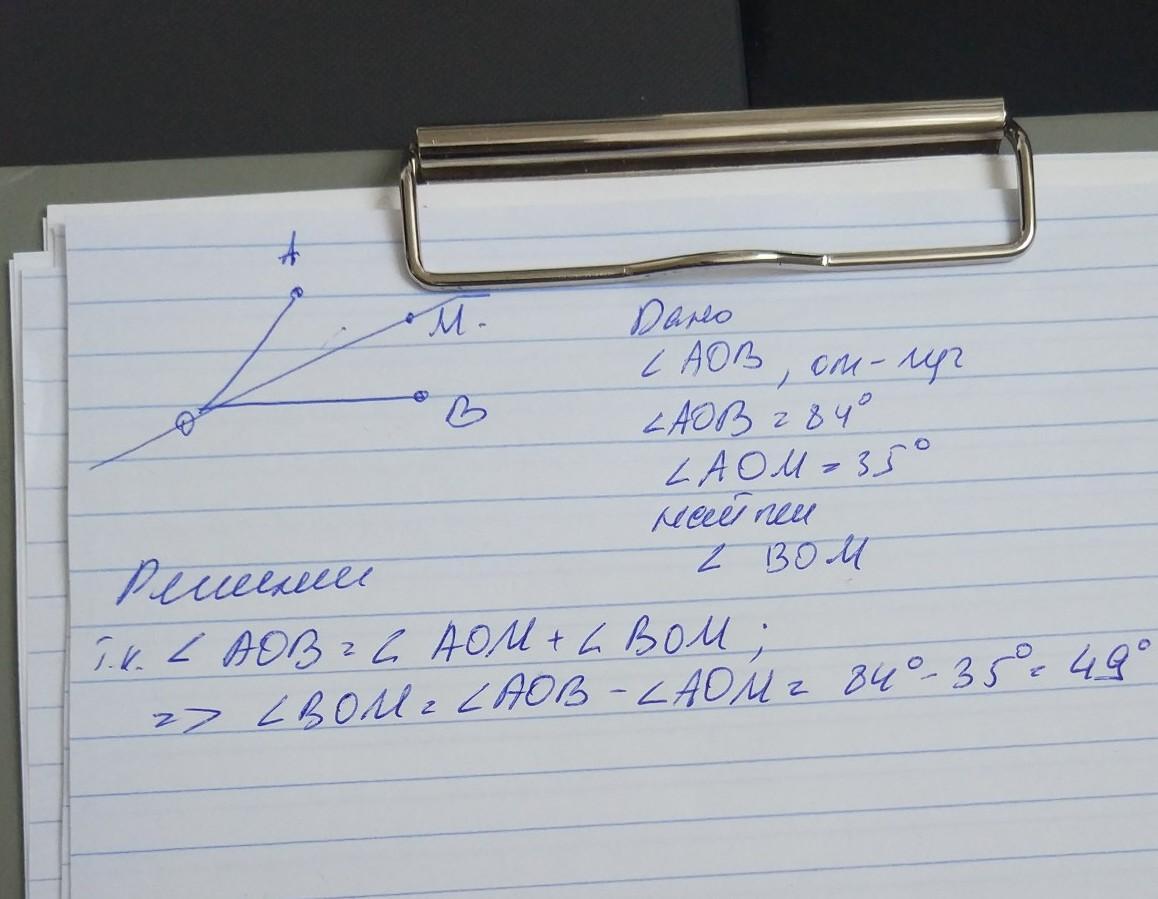 A
M.
B
O
Дано
∠AOB, ом-луч
∠AOB = 84°
∠AOM = 35°
найти
∠ BOM
Решение
т.к. ∠ AOB = ∠ AOM + ∠ BOM ;
=> ∠BOM = ∠AOB - ∠AOM = 84° - 35° = 49°